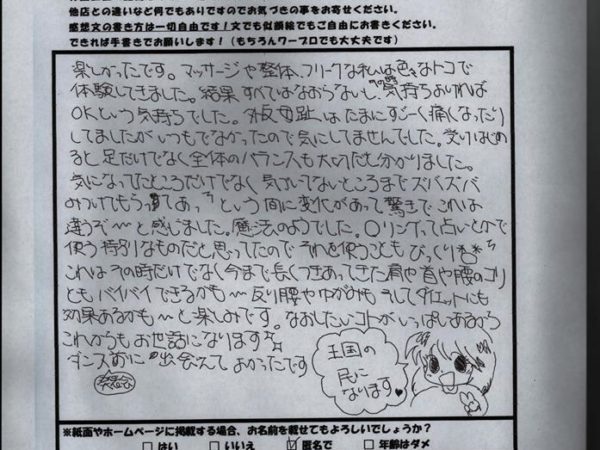 他店との違いなど何でもありますのでお気づきの事をお寄せください。
感想文の書き方は一切自由です！文でも似顔絵でもご自由にお書きください。
できれば手書きでお願いします！（もちろんワープロでも大丈夫です）
楽しかったです。マッサージや整体、フリークな私は色々なトコで
体験してきました。結果すべてはなおらないし、気持ちよければ
OKという気持ちでした。外反母趾はたまにすごーく痛くなったり
してましたがいつもでなかったので気にしてませんでした。受けはじめ
ると足だけでなく全体のバランスも大切だと分かりました。
気になってたところだけでなく気づいてないところまでズバズバ
みつけてもらって"あっ"という間に変化があって驚きでこれは
違うぞ〜と感じました。魔法のようでした。Oリングって占いとかで
使う特別なものだと思ってたのでそれを使うこともびっくり
これはその時だけでなく今まで長くつきあってきた肩や首や腰のコリ
ともバイバイできるかも〜反り腰やゆがみもそしてダイエットにも
効果あるかも〜と楽しみです。なおしたいコトがいっぱいあるから
これからもお世話になります
ダンス前に出会えてよかったです
王国の
民に
なります♥
※紙面やホームページに掲載する場合、お名前を載せてもよろしいでしょうか？
□はい □いいえ ☑匿名で □年齢はダメ